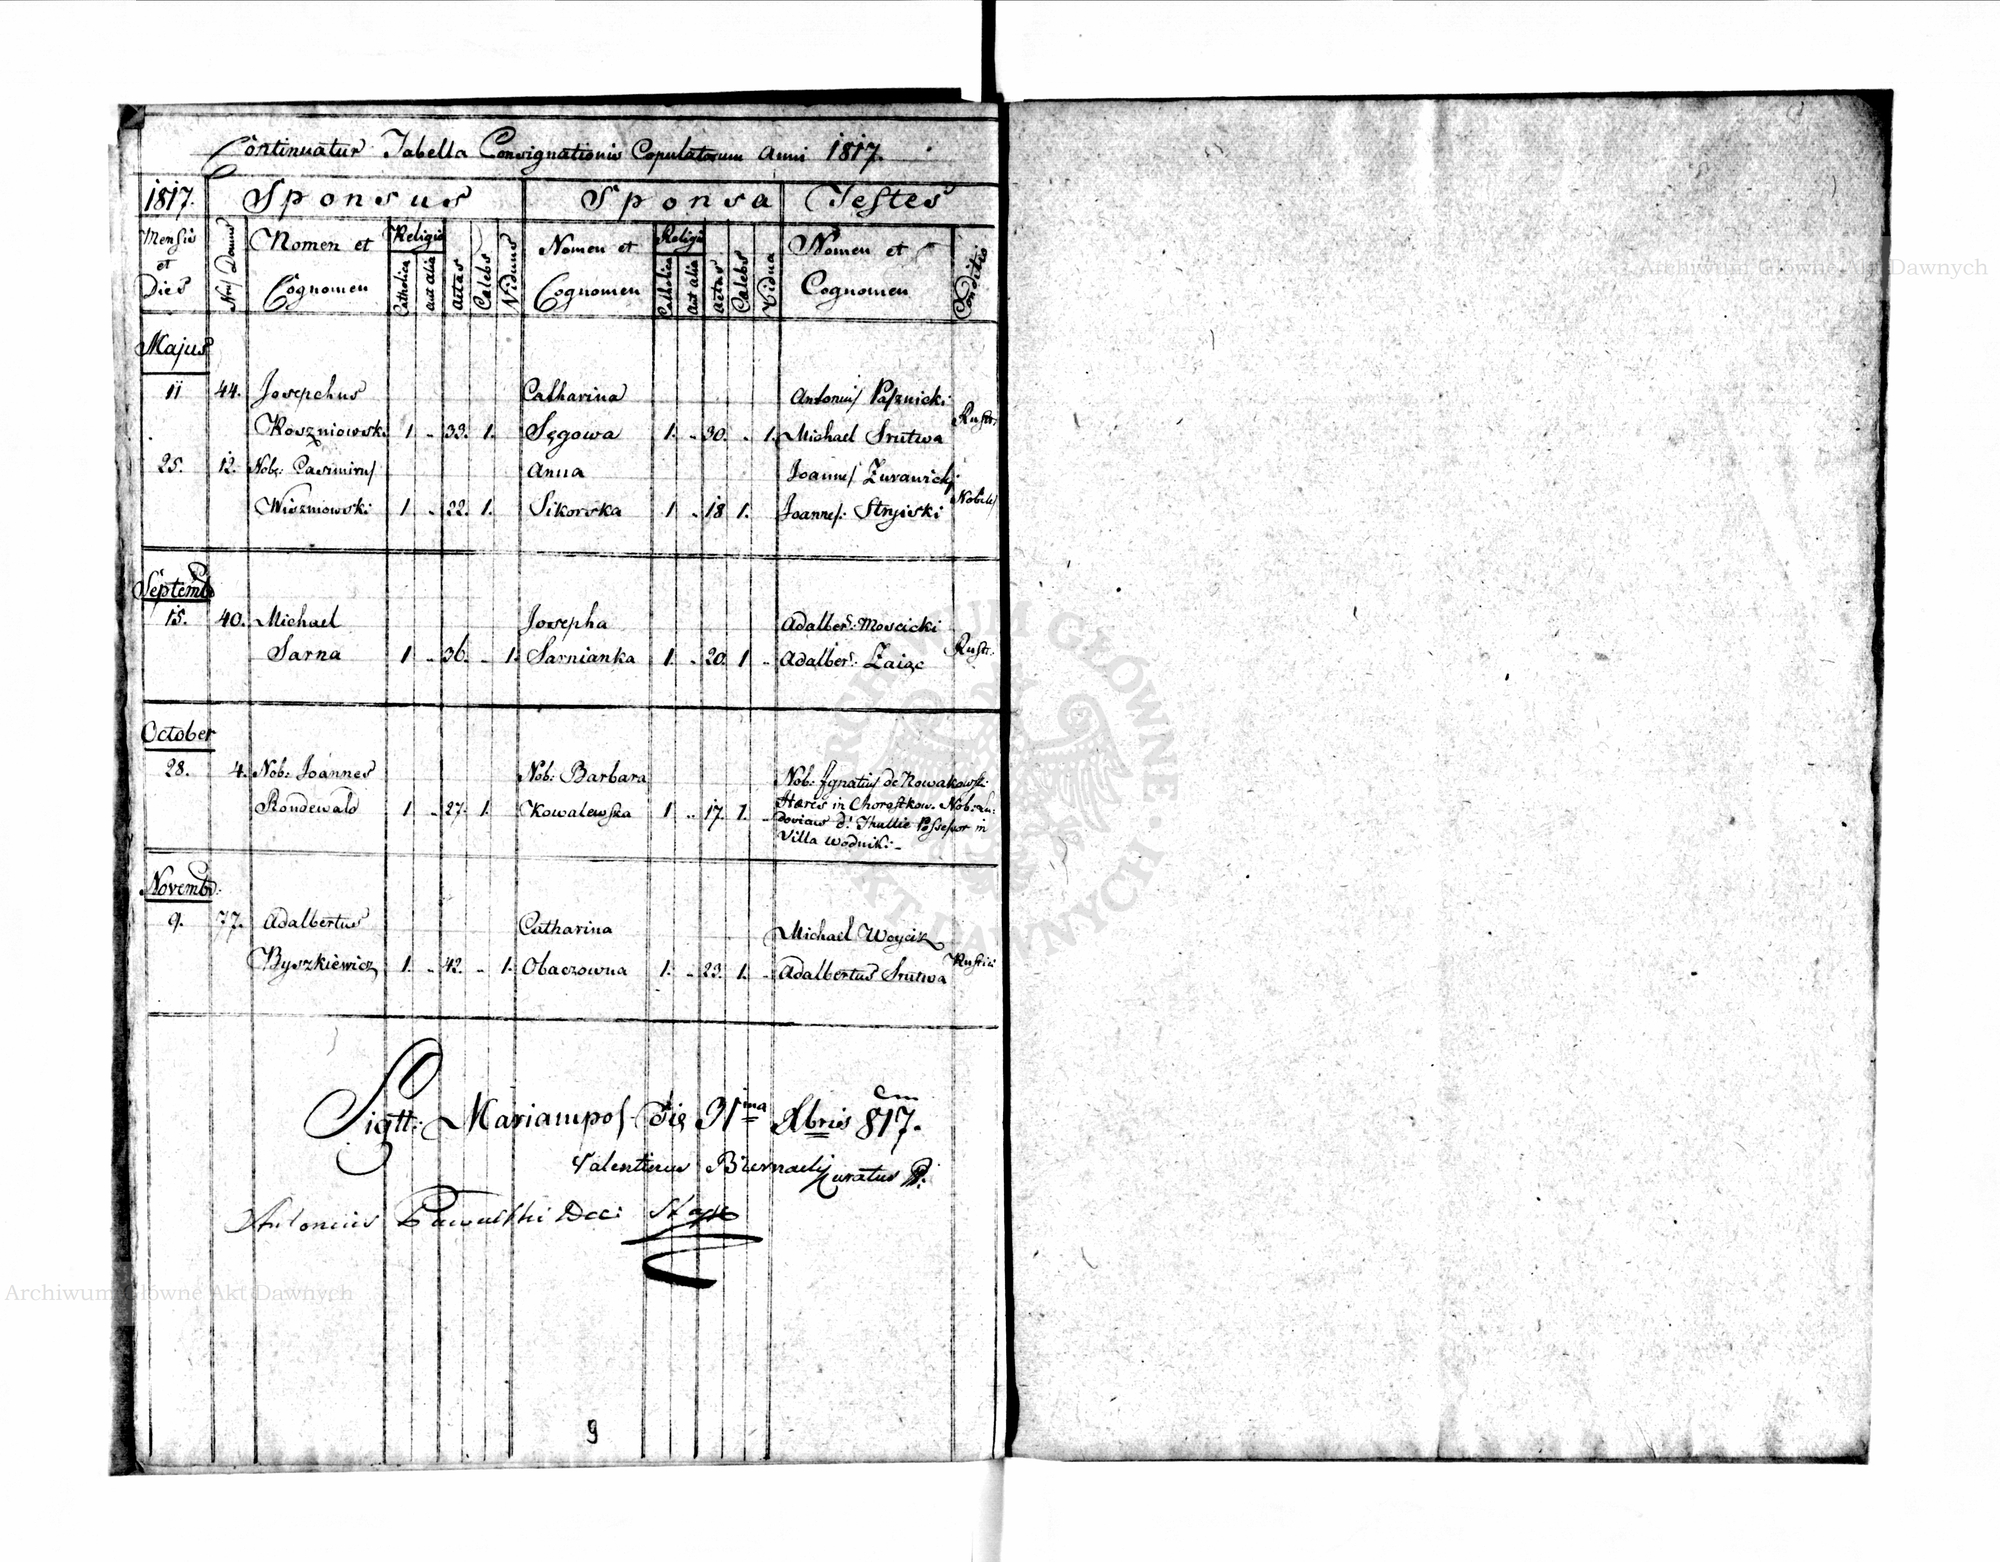 Continuatur Tabella Consignationis Copulatorum Anni 1817.
1817. Sponsus Sponsa Testes
Mensis et Dies
Nrus Domus
Nomen et Cognomen
Religio
Catholica
aut alia
Aetas
Caelebs
Viduus
Nomen et Cognomen
Religio
Catholica
aut alia
Aetas
Caelebs
Vidua
Nomen et Cognomen
Conditio
Majus
11 44. Josephus Catharina Antonius
Koszniowski 1 .. 33. 1. Sęgowa 1. .. 30. .. 1. Michael Srutwa Rustr:
25. 12. Nob: Casimirus Anna Joannes Zurawicki
Wiszniowski 1 .. 22. 1. Sikorska 1 .. 18 1. Joannes: Stryiski Nobiles
Septemb
15. 40. Michael Josepha Adalber: Moscicki
Sarna 1 .. 36. .. 1. Sarnianka 1. .. 20. 1 .. Adalber: Zaiąc Rustr:
October
28. 4. Nob: Joannes Nob: Barbara Nob: Ignatius de Nowakowski
Rondewald 1 .. 27. 1. Kowalewska 1 .. 17. 1. .. Haeres in Chorostkow. Nob: Lu-
dovicus d' Thullie Possessor in
Villa Wodniki -
Novemb:
9. 77. Adalbertus Catharina Michael Woycik
Byszkiewicz 1. .. 42. .. 1. Obaczowna 1. .. 23. 1. .. Adalbertus Srutwa Rustici
Sigtt: Mariampol Die 31ma Xbris 817.
Valentinus Biernacki Curatus
Antonius Dec:
9
Archiwum Główne Akt Dawnych
Archiwum Główne Akt Dawnych
ARCHIWUM GŁÓWNE AKT DAWNYCH